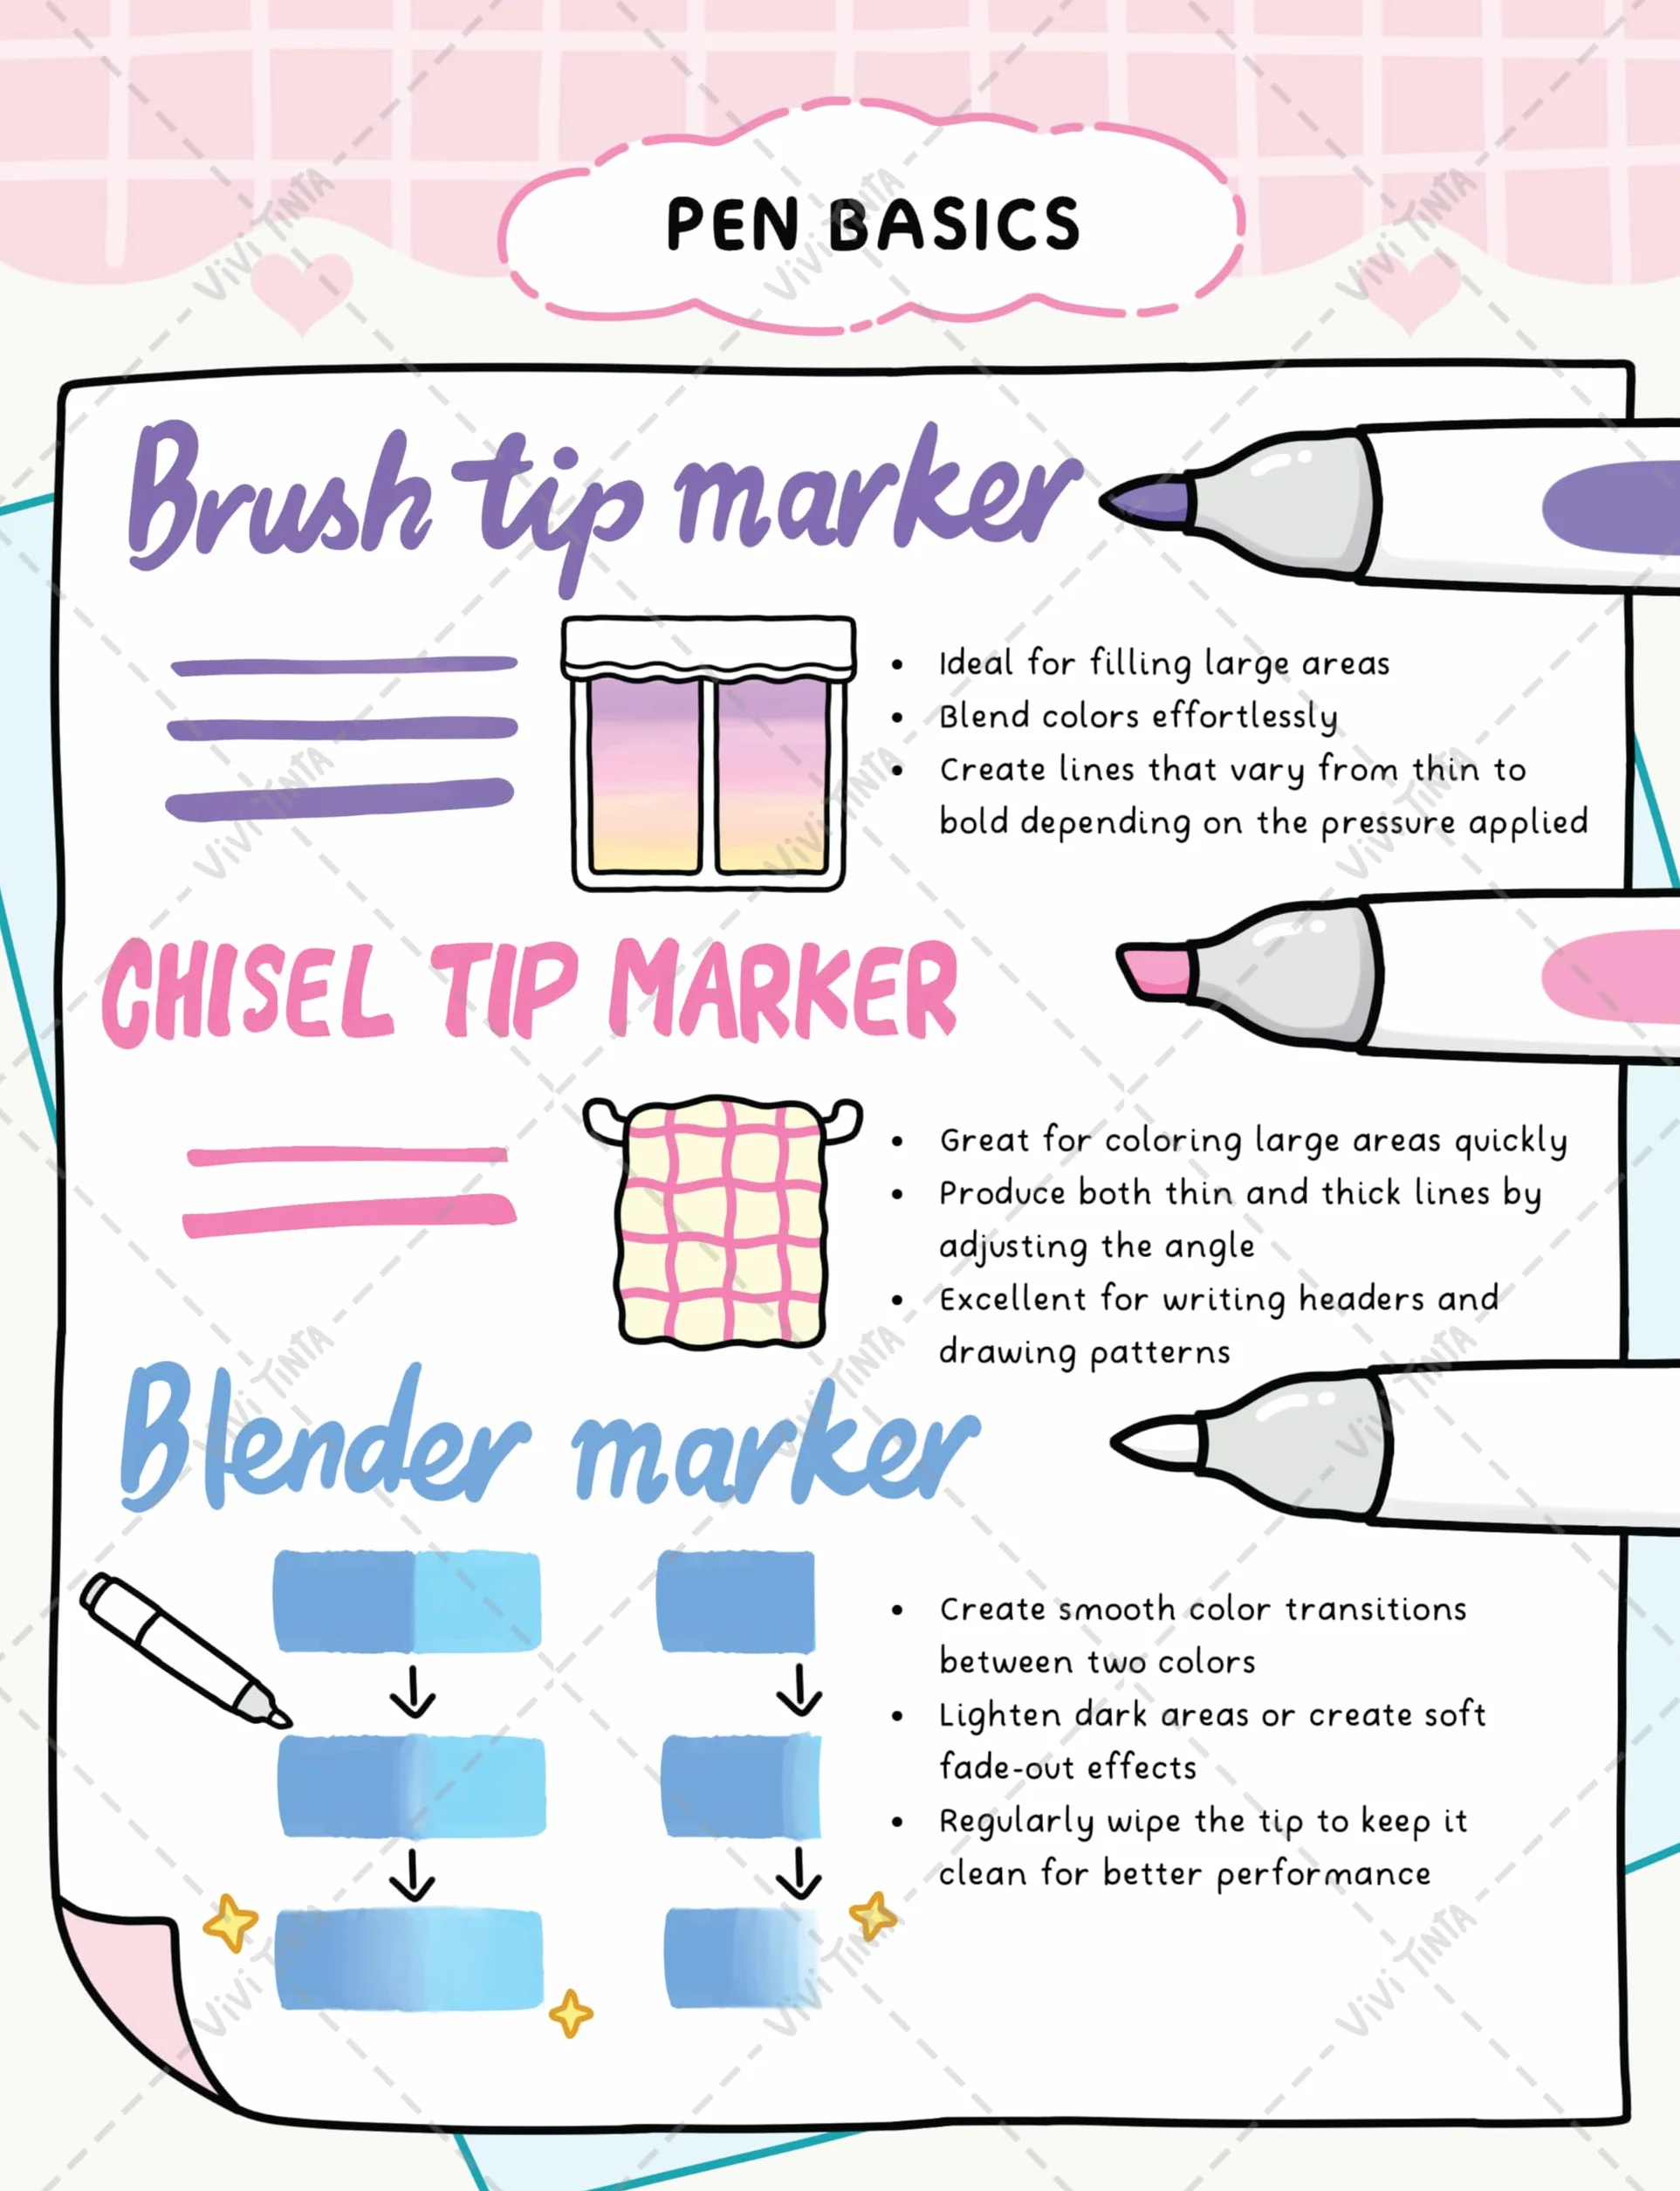 PEN BASICS
Brush tip marker
• Ideal for filling large areas
• Blend colors effortlessly
• Create lines that vary from thin to
bold depending on the pressure applied
CHISEL TIP MARKER
• Great for coloring large areas quickly
• Produce both thin and thick lines by
adjusting the angle
• Excellent for writing headers and
drawing patterns
Blender marker
• Create smooth color transitions
between two colors
• Lighten dark areas or create soft
fade-out effects
• Regularly wipe the tip to keep it
clean for better performance
ViVi TiNTA
ViVi TiNTA
ViVi TiNTA
ViVi TiNTA
ViVi TiNTA
ViVi TiNTA
ViVi TiNTA
ViVi TiNTA
ViVi TiNTA
ViVi TiNTA
ViVi TiNTA
ViVi TiNTA